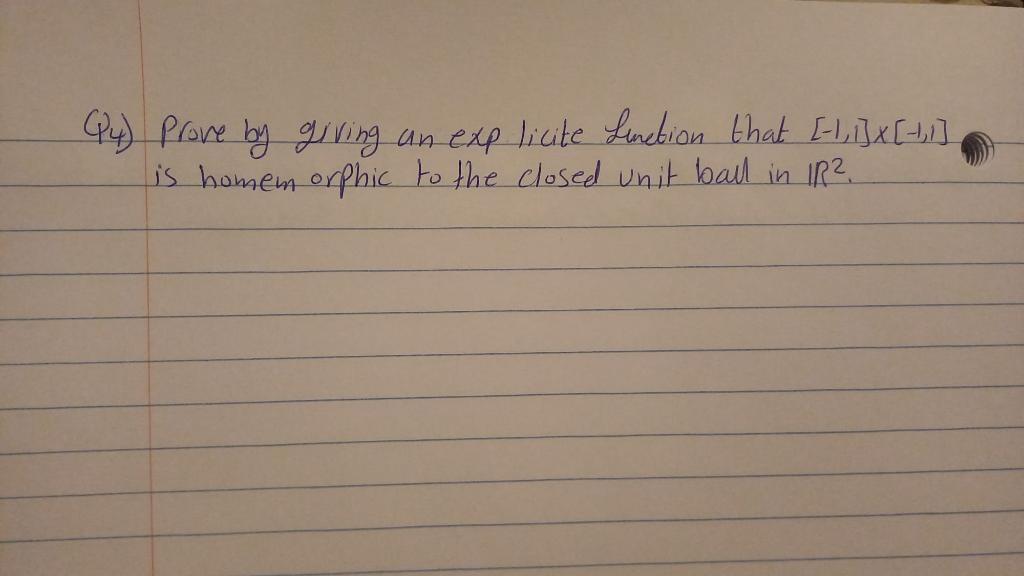 Q4) Prove by giving an exp licite function that [-1,1]x[-1,1]
is homem orphic to the closed unit ball in IR².